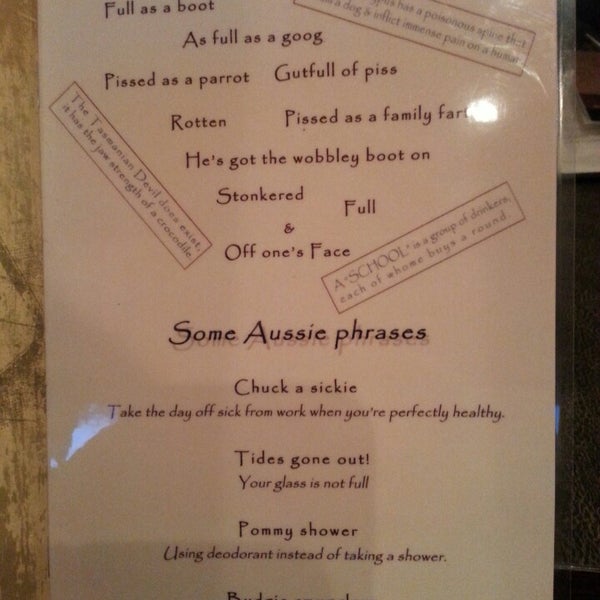 Full as a boot
has a poisonous spine that
a dog & inflict immense pain on a human
As full as a goog
Pissed as a parrot
Gutfull of piss
Rotten
Pissed as a family fart
The Tasmanian Devil does exist,
it has the jaw strength of a crocodile.
He's got the wobbley boot on
Stonkered
Full
&
Off one's Face
A "SCHOOL" is a group of drinkers,
each of whome buys a round
Some Aussie phrases
Chuck a sickie
Take the day off sick from work when you're perfectly healthy.
Tides gone out!
Your glass is not full
Pommy shower
Using deodorant instead of taking a shower.